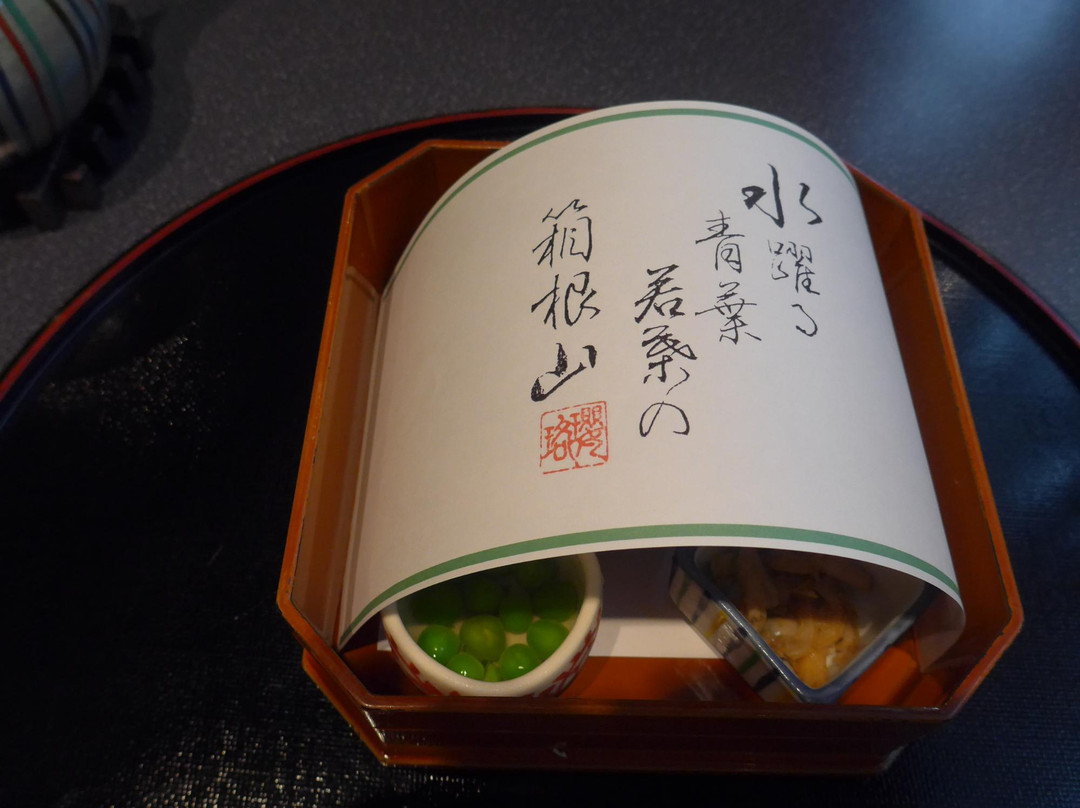 水躍る
青葉
若葉の
箱根山
瓔珞